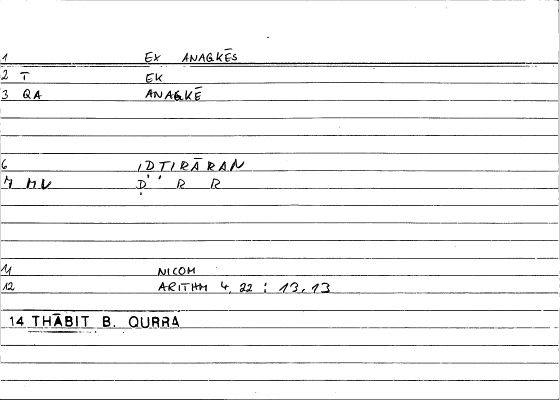 1 EX ANAGKĒS
2 T̄ EK
3 QA ANAGKĒ
6 IḌTIRĀRAN
7 MU Ḍ R R
11 NICOM
12 ARITHM 4,22 : 13.13
14 THĀBIT B. QURRA